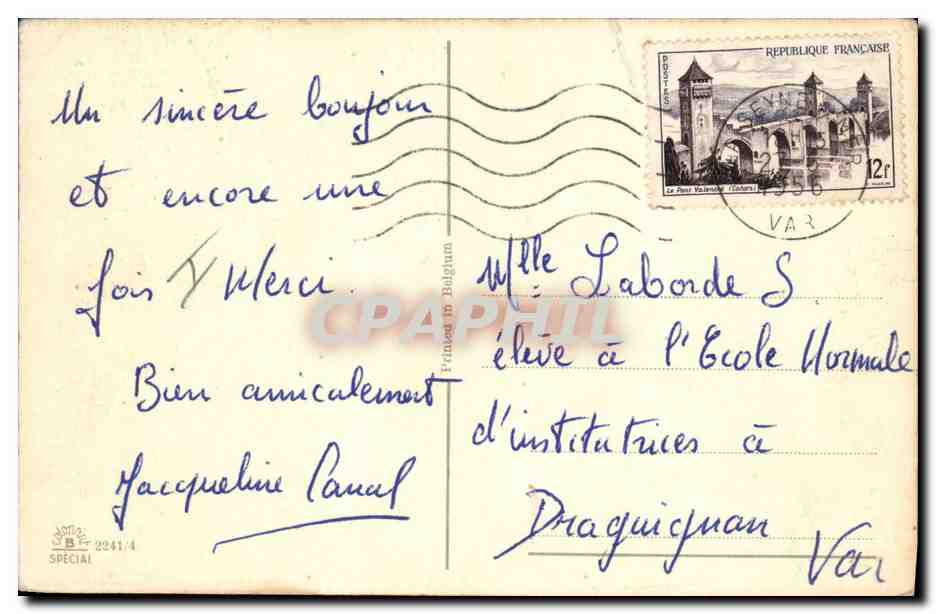 Un sincère bonjour
et encore une
fois Merci.
Bien amicalement
Jacqueline Canal
Colombier
B 2241/4
SPÉCIAL
Printed in Belgium
CPAPHIL
REPUBLIQUE FRANÇAISE
POSTES
12F
Le Pont Valentré (Cahors)
1956
VAR
Mlle Laborde S
élève à l'Ecole Normale
d'institutrices à
Draguignan
Var